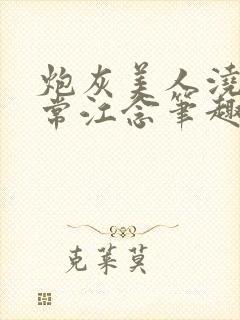 炮灰美人浇
常江念笔趣
克莱莫